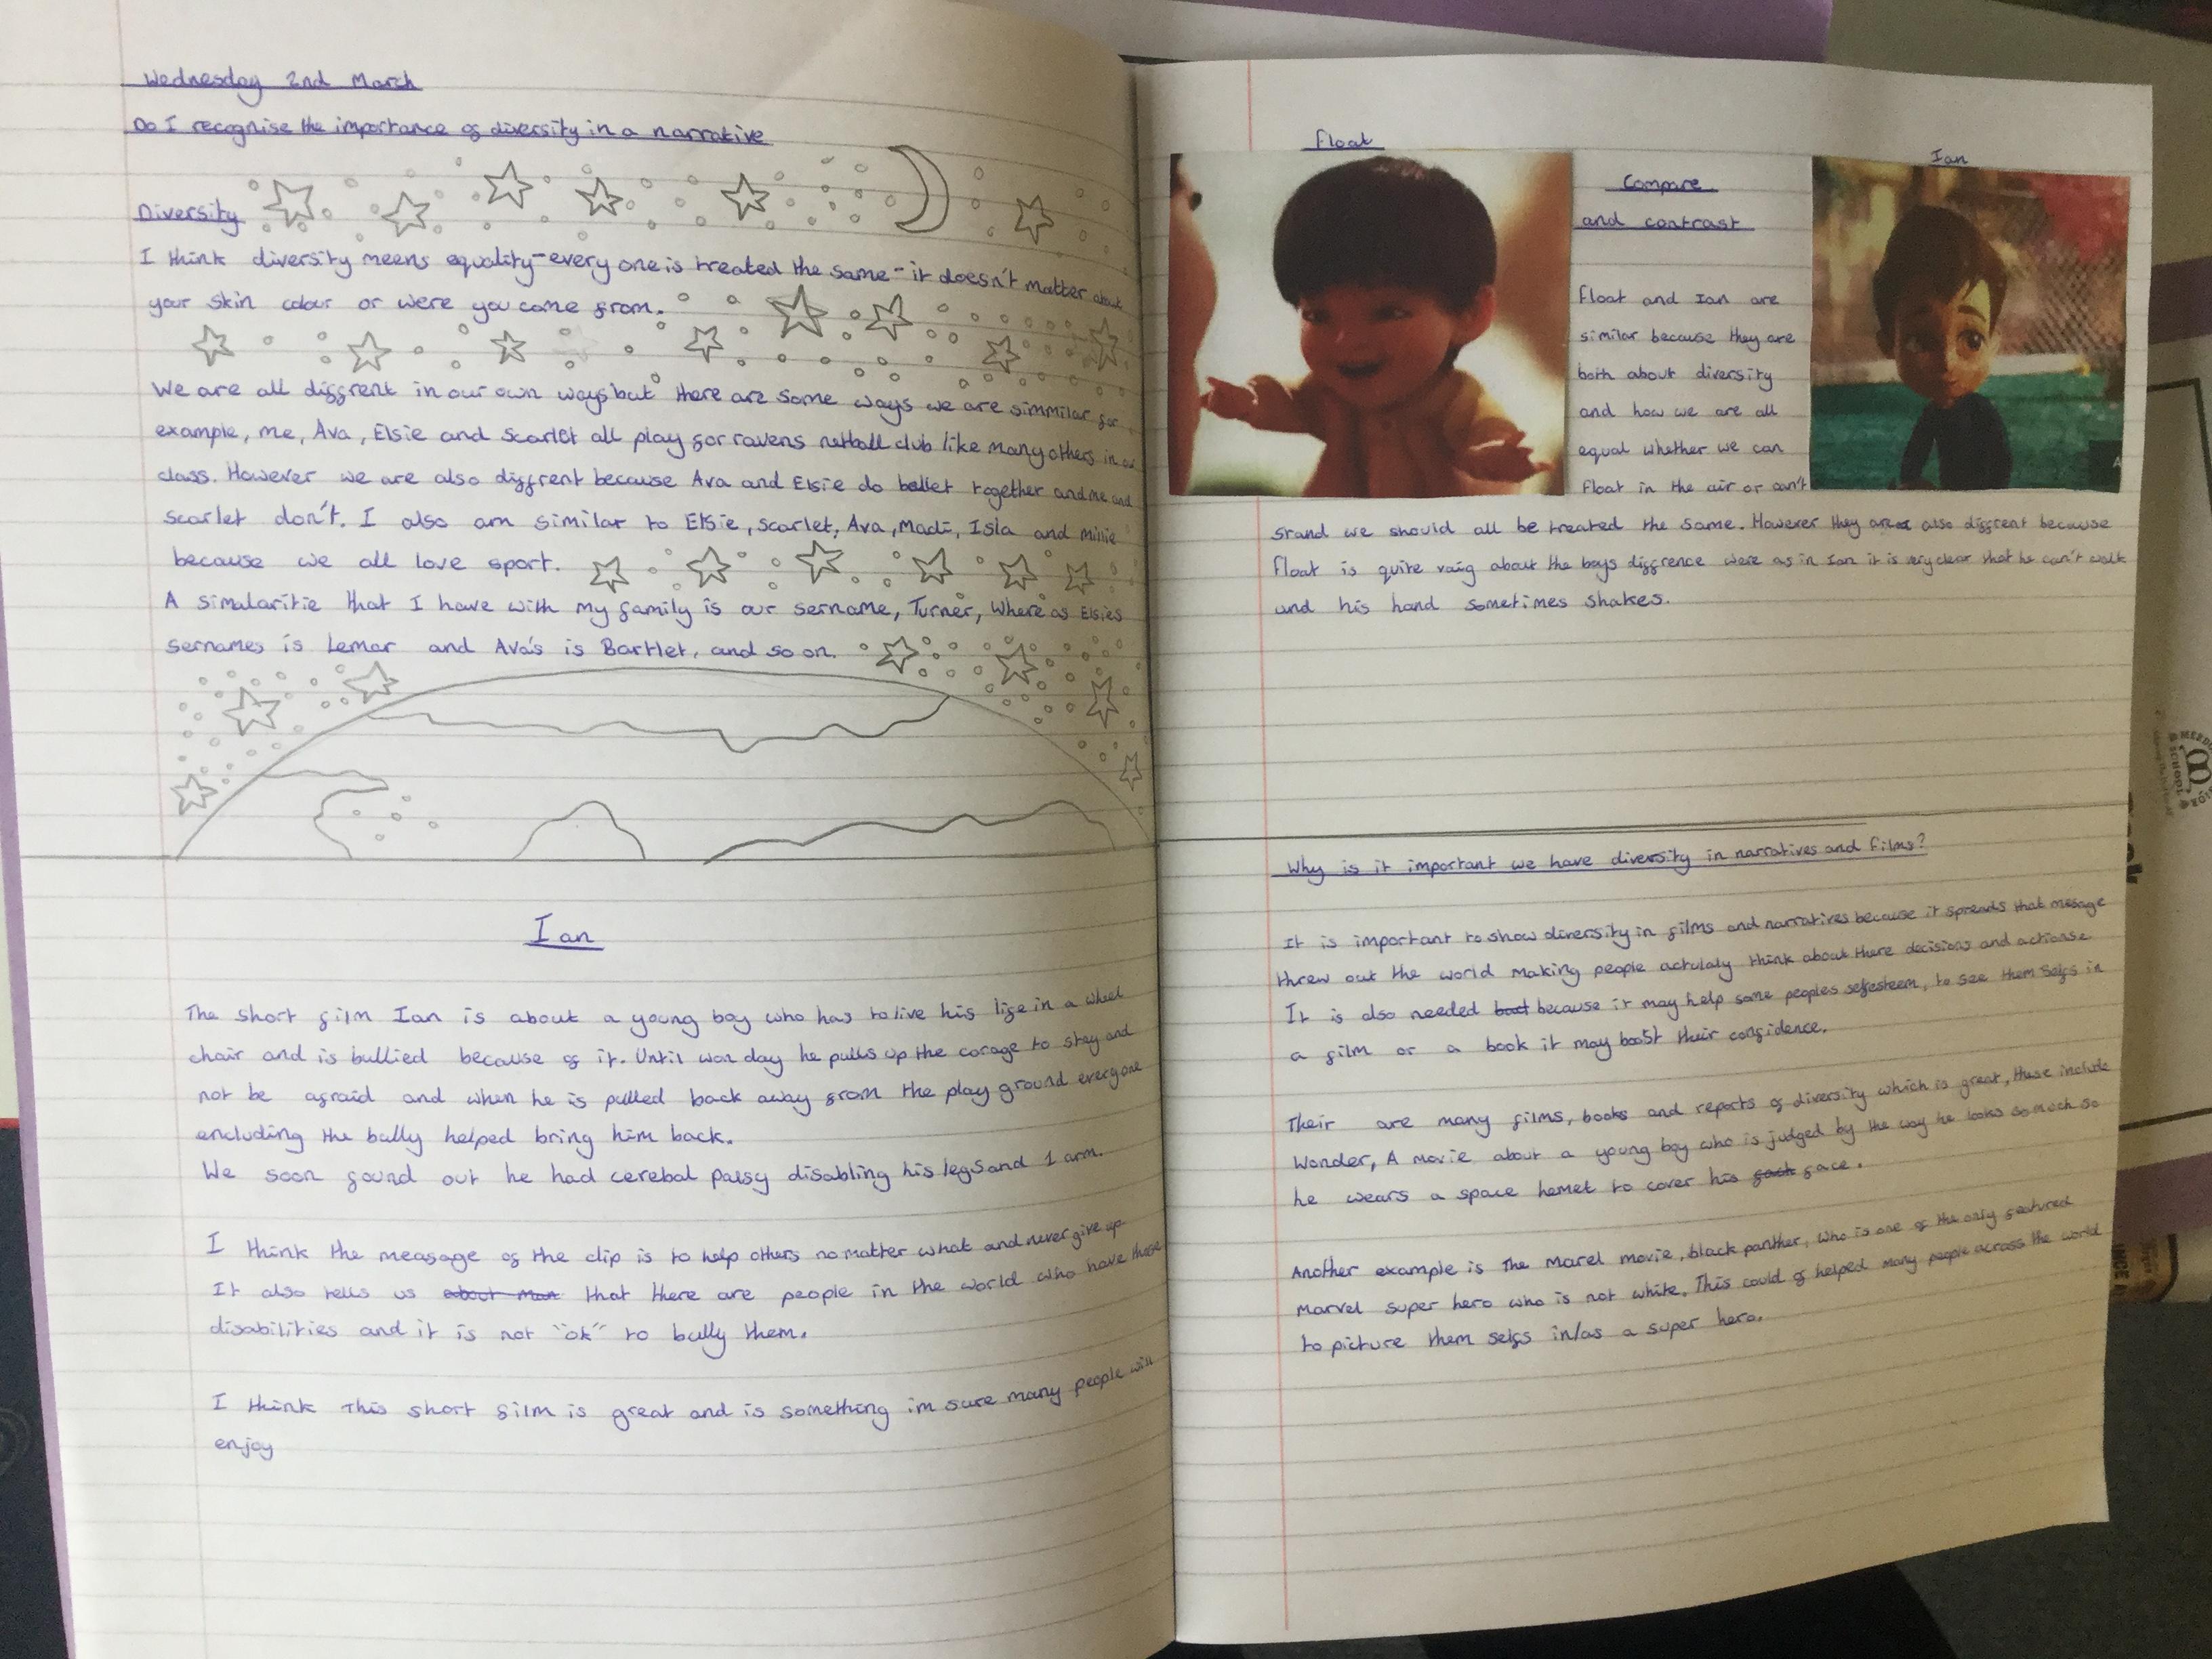 Wednesday 2nd March
Do I recognise the importance of diversity in a narrative
Diversity
I think diversity meens equality-every one is treated the same - it doesn't matter about
your skin colour or were you come from.
We are all diffrent in our own ways but there are some ways we are simmilar for
example, me, Ava, Elsie and Scarlet all play for ravens netball club like many others in our
class. However we are also diffrent because Ava and Elsie do ballet together and me and
scarlet don't. I also am similar to Elsie, scarlet, Ava, Madi, Isla and Millie
because we all love sport.
A simalaritie that I have with my family is our sername, Turner, Where as Elsies
sernames is Lemar and Ava's is Bartlet, and so on.
Ian
The short film Ian is about a young boy who has to live his life in a wheel
chair and is bullied because of it. Until won day he pulls up the corage to stay and
not be afraid and when he is pulled back away from the play ground everyone
encluding the bully helped bring him back.
We soon found out he had cerebal palsy disabling his legs and 1 arm.
I think the meassage of the clip is to help others no matter what and never give up
It also tells us that there are people in the world who have these
disabilities and it is not "ok" to bully them.
I think This short film is great and is something im sure many people will
enjoy
float
Ian
Compare
and contrast
float and Ian are
similar because they are
both about diversity
and how we are all
equal whether we can
float in the air or can't
stand we should all be treated the same. However they are also diffrent because
float is quite vaig about the boys diffrence were as in Ian it is very clear that he can't walk
and his hand sometimes shakes.
MEED
SCHOOL
Why is it important we have diversity in narratives and films?
It is important to show diversity in films and narratives because it spreads that mesage
threw out the world making people actulaly think about there decisions and actionse
It is also needed because it may help some peoples selfesteem, to see them selfs in
a film or a book it may boost their confidence.
Their are many films, books and reports of diversity which is great, these include
Wonder, A movie about a young boy who is judged by the way he looks so much so
he wears a space hemet to cover his face.
Another example is The Marel movie, black panther, Who is one of the only featured
Marvel super hero who is not white. This could of helped many people across the world
to picture them selfs in/as a super hero.